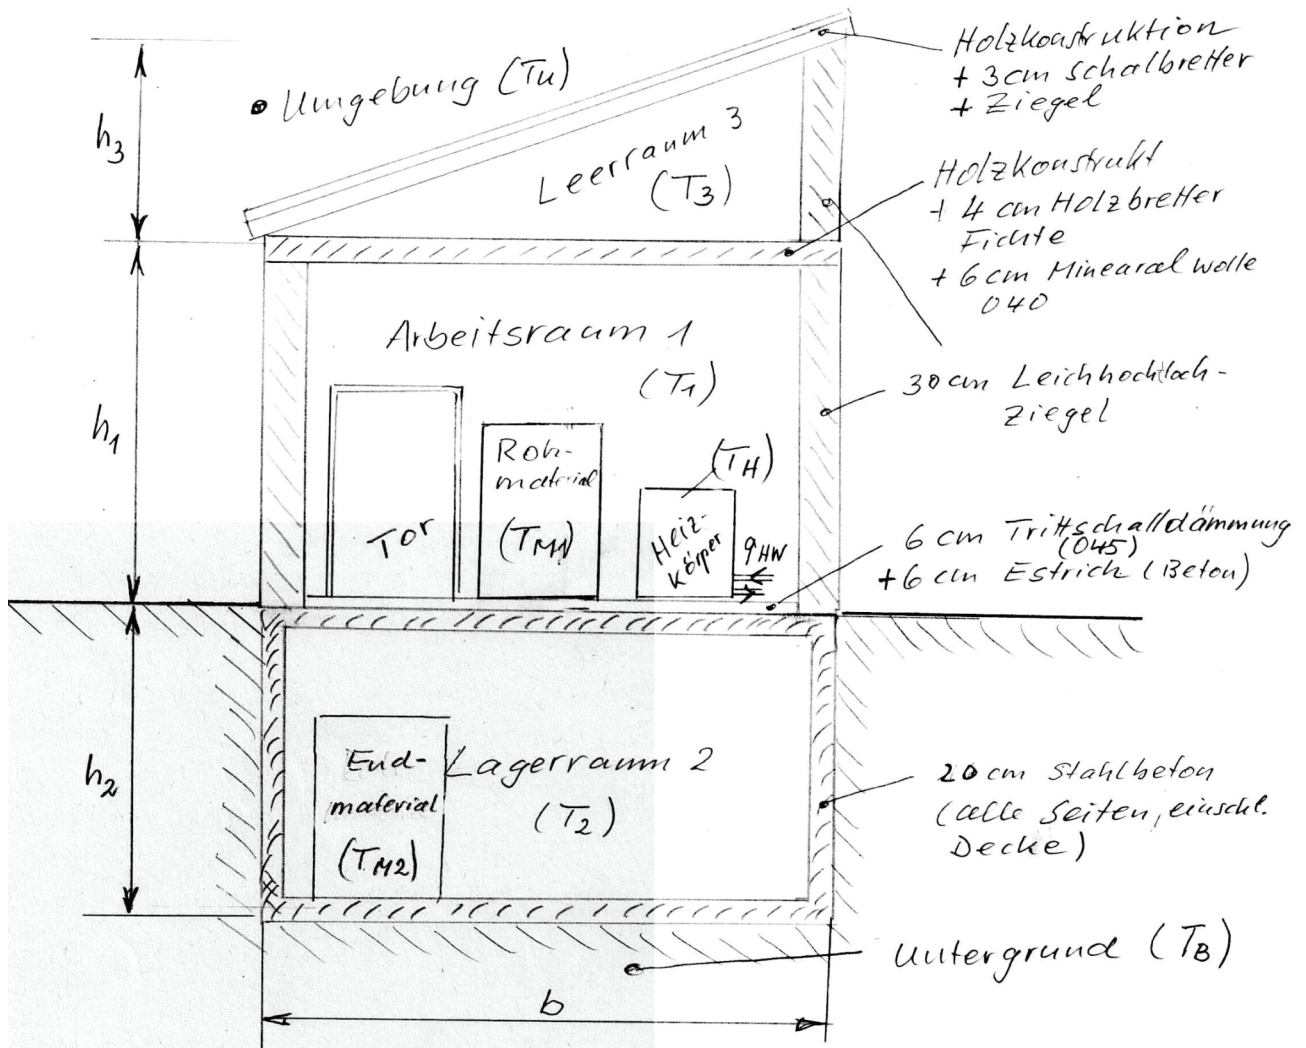 Holzkonstruktion
+ 3cm Schalbretter
+ Ziegel
Umgebung (Tu)
h3
Leerraum 3
(T3)
Holzkonstrukt
+ 4 cm Holzbretter
Fichte
+ 6 cm Minearal wolle
040
Arbeitsraum 1
(T1)
30 cm Leichhochloch-
Ziegel
h1
Roh-
material
(TM1)
(TH)
Tor
Heiz-
körper
qHW
6 cm Trittschalldämmung
(045)
+ 6 cm Estrich (Beton)
h2
End-
material
(TM2)
Lagerraum 2
(T2)
20 cm Stahlbeton
(alle Seiten, einschl.
Decke)
Untergrund (TB)
b